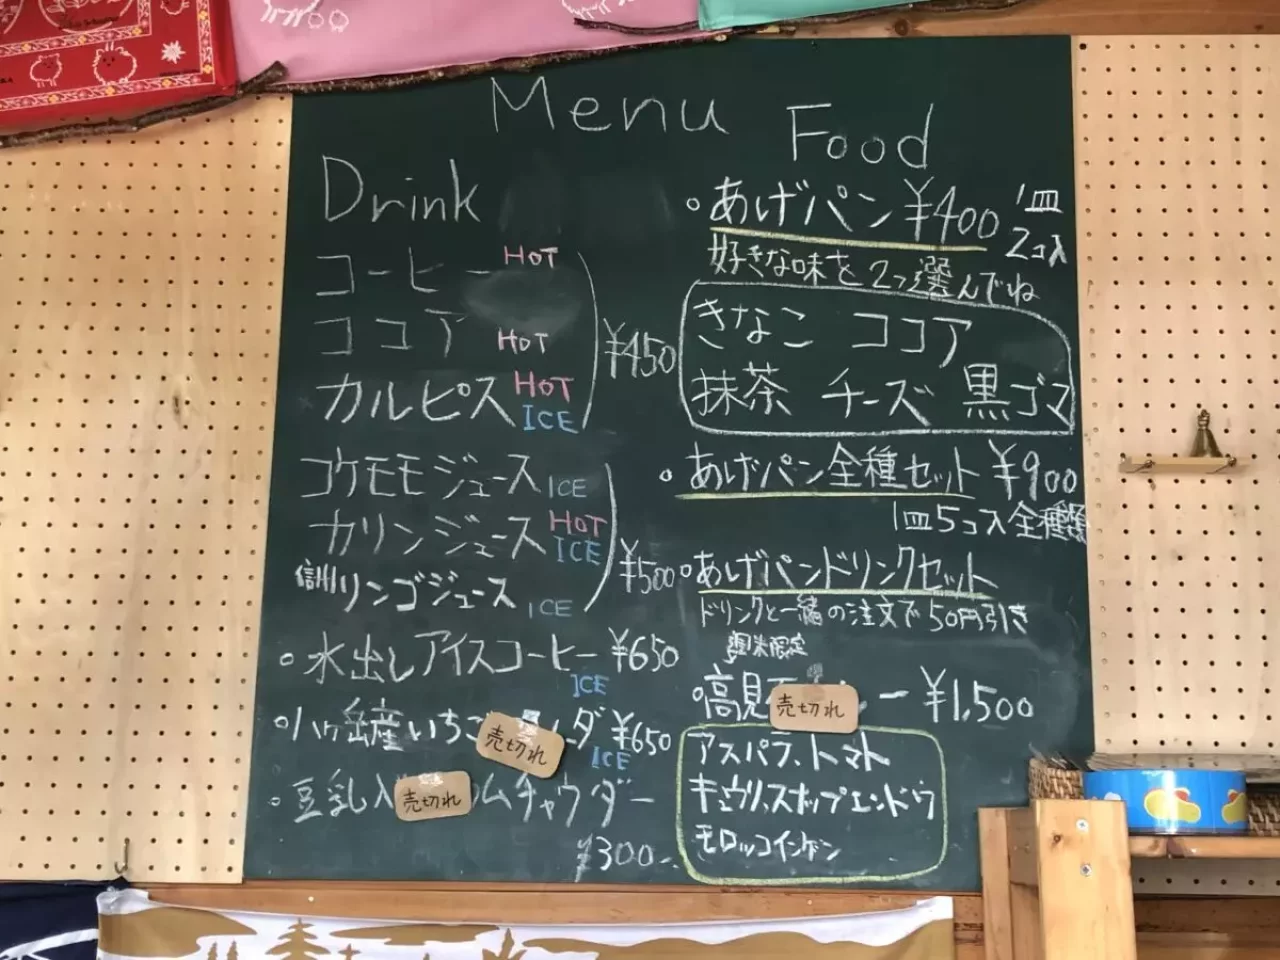 Menu
Drink
コーヒー HOT
ココア HOT
カルピス HOT ICE
¥450
コケモモジュース ICE
カリンジュース HOT ICE
信州リンゴジュース ICE
¥500
。水出しアイスコーヒー ¥650
ICE
。八ヶ岳産いちご ダ ¥650
売切れ
ICE
。豆乳入 ムチャウダー
売切れ
¥300
Food
。あげパン ¥400 1皿2コ入
好きな味を2つ選んでね
きなこ ココア
抹茶 チーズ 黒ゴマ
。あげパン全種セット ¥900
1皿5コ入全種類
。あげパンドリンクセット
ドリンクと一緒の注文で50円引き
週末限定
。高見 ー ¥1,500
売切れ
アスパラ、トマト
キュウリ、スナップエンドウ
モロッコインゲン